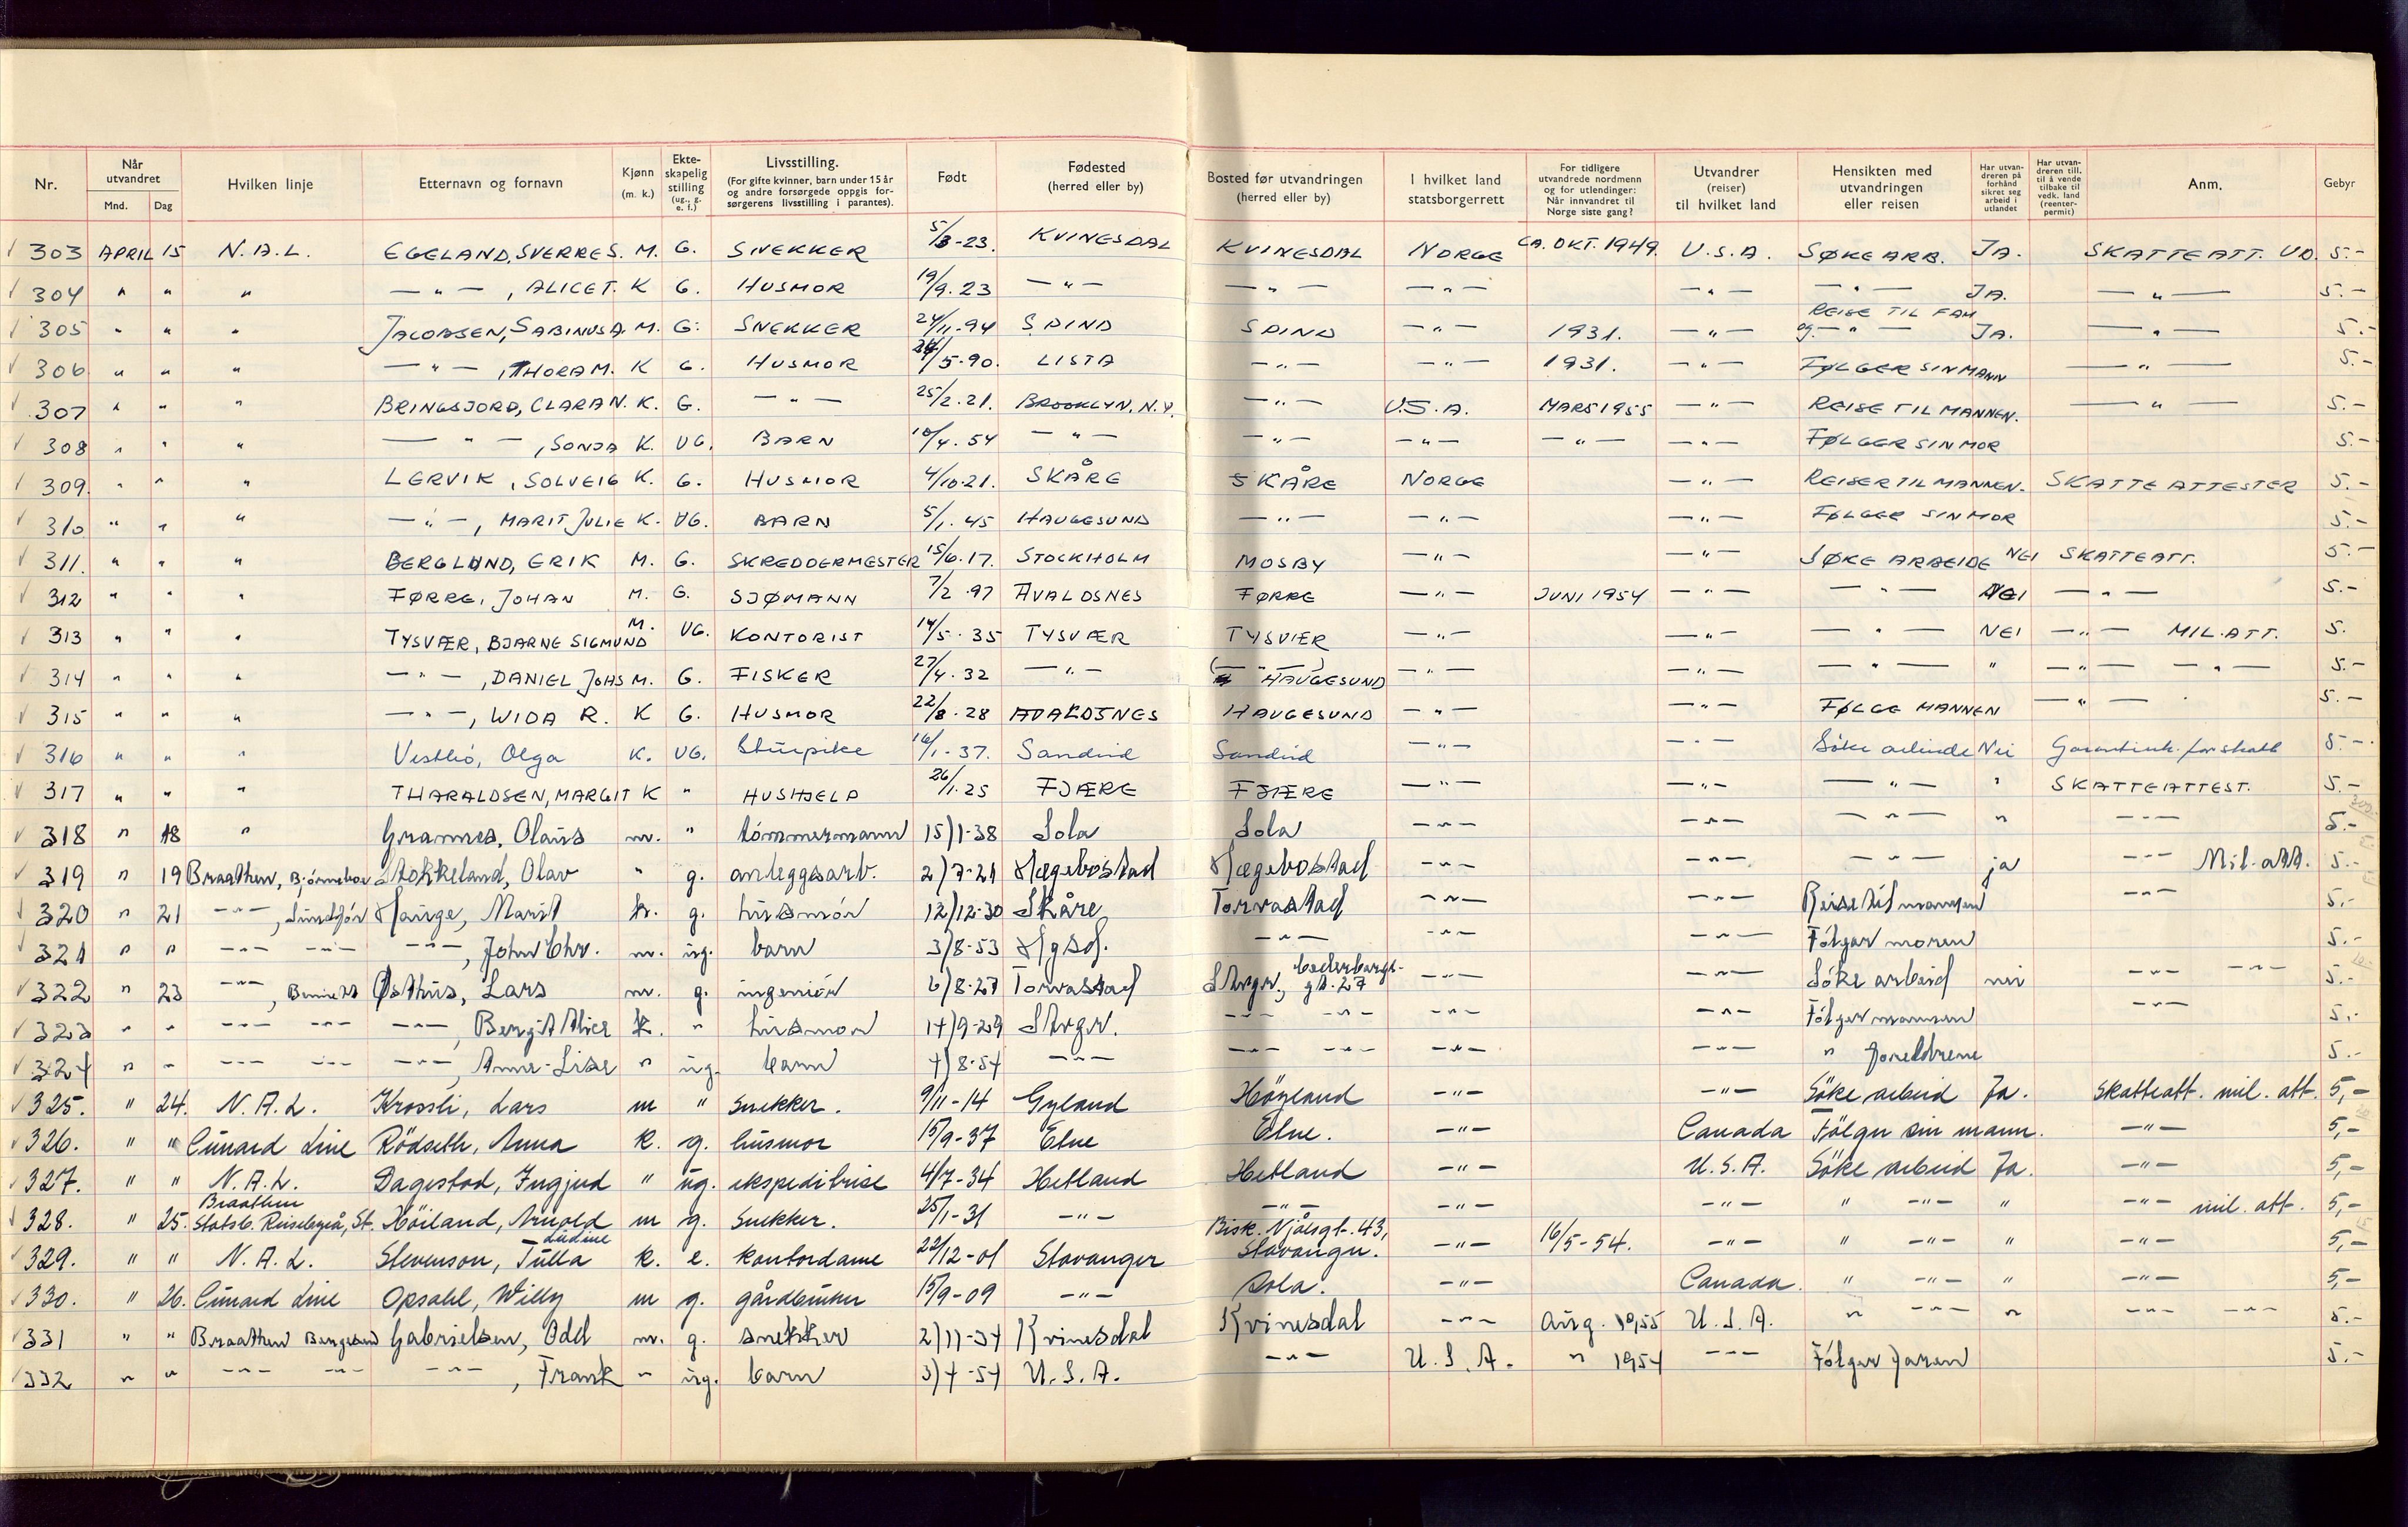 Nr. | Når utvandret Mnd. Dag | Hvilken linje | Etternavn og fornavn | Kjønn (m. k.) | Ekteskapelig stilling (ug., g. e. f.) | Livsstilling. (For gifte kvinner, barn under 15 år og andre forsørgede oppgis forsørgerens livsstilling i parantes). | Født | Fødested (herred eller by) | Bosted før utvandringen (herred eller by) | I hvilket land statsborgerrett | For tidligere utvandrede nordmenn og for utlendinger: Når innvandret til Norge siste gang? | Utvandrer (reiser) til hvilket land | Hensikten med utvandringen eller reisen | Har utvandreren på forhånd sikret seg arbeid i utlandet | Har utvandreren till. til å vende tilbake til vedk. land (reenter-permit) | Anm. | Gebyr
303 APRIL 15 N.A.L. EGELAND, SVERRE S. M. G. SNEKKER 5/3-23. KVINESDAL KVINESDAL NORGE CA. OKT. 1949. U.S.A. SØKE ARB. JA. SKATTEATT. UD. 5.-
304 " " " — " — , ALICE T. K G. HUSMOR 19/9.23 — " — — " — — " — — " — — " — JA. — " — 5.-
305 " " " JACOBSEN, SABINUS A. M. G. SNEKKER 24/11-94 SPIND SPIND — " — 1931. — " — REISE TIL FAM og — " — JA. — " — 5.-
306 " " " — " — , THORA M. K G. HUSMOR 5-90. LISTA — " — — " — 1931. — " — FØLGER SIN MANN — " — 5.-
307 " " " BRINGSJORD, CLARA N. K. G. — " — 25/2.21. BROOKLYN, N.Y. — " — U.S.A. MARS 1955 — " — REISE TIL MANNEN. — " — 5.-
308 " " " — " — , SONJA K. UG. BARN 10/4.54 — " — — " — — " — — " — — " — FØLGER SIN MOR 5.-
309. " " " LERVIK, SOLVEIG K. G. HUSMOR 4/10-21. SKÅRE SKÅRE NORGE — " — REISER TIL MANNEN. SKATTE ATTESTER 5.-
310 " " " — " — , MARIT JULIE K. UG. BARN 5/1.45 HAUGESUND — " — — " — — " — FØLGER SIN MOR 5.-
311. " " " BERGLUND, ERIK M. G. SKREDDERMESTER 15/6.17. STOCKHOLM MOSBY — " — — " — SØKE ARBEIDE NEI SKATTEATT. 5.-
312 " " " FØRRE, JOHAN M. G. SJØMANN 7/2.97 AVALDSNES FØRRE — " — JUNI 1954 — " — — " — NEI — " — 5.-
313 " " " TYSVÆR, BJARNE SIGMUND M. UG. KONTORIST 14/5.35 TYSVÆR TYSVÆR — " — — " — — " — NEI — " — MIL. ATT. 5.
314 " " " — " — , DANIEL JOHS M. G. FISKER 27/4.32 — " — ( — " — ) HAUGESUND — " — — " — — " — " — " — — " — 5.-
315 " " " — " — , WIDA R. K G. HUSMOR 22/8.28 AVALDSNES HAUGESUND — " — — " — FØLGE MANNEN — " — 5.-
316 " " " Vestbö, Olga K. UG. Stuepike 16/1-37. Sandeid Sandeid — " — — " — Söke arbeide Nei Garantierk. for skatt 5.-
317 " " " THARALDSEN, MARGIT K " HUSHJELP 26/1.25 FJÆRE FJÆRE — " — — " — — " — " SKATTEATTEST. 5.-
318 " 18 " Grannes, Olaus m. " tömmermann 15/1-38 Sola Sola — " — — " — — " — " — " — 5.-
319 " 19 Braathen, Stokkeland, Olav " g. anleggsarb. 2/7-21 Hægebostad Hægebostad — " — — " — — " — ja — " — Mil. att. 5.-
320 " 21 — " — , Hauge, Marit k. g. husmor 12/12-30 Skåre Torvastad — " — — " — Reise til mannen — " — 5.-
321 " " — " — — " — — " — , John Chr. m. ug. barn 3/8-53 Hgsd. — " — — " — — " — Fölger moren 5.-
322 " 23 — " — , Bennett Østhus, Lars m. g. ingeniör 6/8-27 Torvastad Stvgr., gt. 27 — " — — " — Söke arbeid nei — " — — " — 5.-
323 " " — " — — " — — " — , Bergit Alice k. " husmor 14/9-29 Stvgr. — " — — " — — " — — " — Fölger mannen — " — 5.-
324 " " — " — — " — — " — , Anne-Lise " ug. barn 4/8-54 — " — — " — — " — — " — — " — " foreldrene 5.-
325. " 24. N.A.L. Krossli, Lars m " Snekker. 9/11-14 Gyland Höyland — " — — " — Söke arbeid Ja. Skatteatt. mil. att. 5,-
326. " " Cunard Line Rödseth, Anna k. g. husmor 15/9-37 Etne Etne. — " — Canada Fölger sin mann. — " — 5,-
327. " " N.A.L. Dagestad, Ingjerd " ug. ekspeditrise 4/7-34 Hetland Hetland — " — U.S.A. Söke arbeid Ja. — " — 5,-
328. " 25. Braathen Statsb. Reisebyrå, St. Höiland, Arnold m g. Snekker. 25/1-31 — " — — " — — " — — " — " — " — " — " — mil. att. 5,-
329. " " N.A.L. Stevenson, Tulla Ludine k. e. kontordame 22/12-01 Stavanger Bisk. Njålsgt. 43, Stavanger. — " — 16/5-54. — " — " — " — " — " — 5,-
330. " 26. Cunard Line Opsahl, Willy m g. gårdbruker 15/9-09 — " — Sola. — " — Canada. " — " — " — " — 5,-
331 " " Braathen Gabrielsen, Odd m. g. snekker 2/11-34 Kvinesdal Kvinesdal — " — Aug. 1955 U.S.A. " — " — " — " — — " — 5.-
332 " " — " — — " — — " — , Frank " ug. barn 3/4-54 U.S.A. — " — U.S.A. " 1954 — " — Fölger faren 5.-